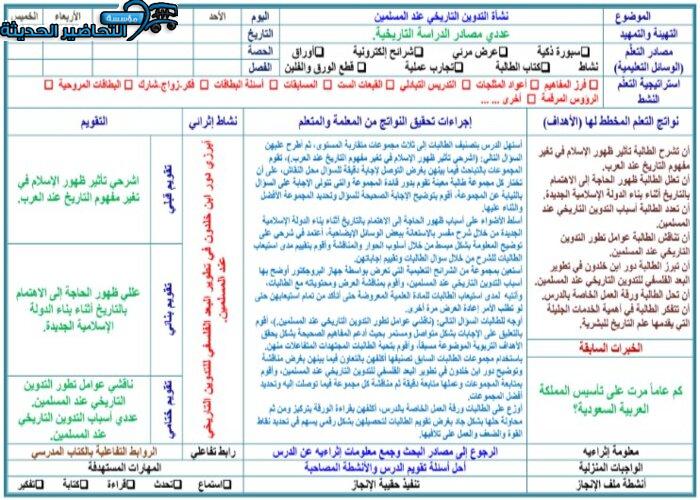 مؤسسة
التحاضير الحديثة
الموضوع
نشأة التدوين التاريخي عند المسلمين
اليوم
الأحد
الأربعاء
الخميس
التهيئة والتمهيد
عددي مصادر الدراسة التاريخية.
التاريخ
مصادر التعلم
(الوسائل التعليمية)
سبورة ذكية □ عرض مرئي □ شرائح إلكترونية □ أوراق
نشاط □ كتاب الطالبة □ تجارب عملية □ قطع الورق والفلين
الحصة
الفصل
استراتيجية التعلم
النشط
□ فرز المفاهيم □ أعواد المثلجات □ التدريس التبادلي □ القبعات الست □ المسابقات □ أسئلة البطاقات □ فكر-زواج-شارك □ البطاقات المروحية
□ الرؤوس المرقمة □ أخرى ... ...
نواتج التعلم المخطط لها (الأهداف)
إجراءات تحقيق النواتج من المعلمة والمتعلم
نشاط إثرائي
التقويم
أن تشرح الطالبة تأثير ظهور الإسلام في تغير
مفهوم التاريخ عند العرب.
أن تعلل الطالبة ظهور الحاجة إلى الاهتمام
بالتاريخ أثناء بناء الدولة الإسلامية الجديدة.
أن تعدد الطالبة أسباب التدوين التاريخي عند
المسلمين.
أن تناقش الطالبة عوامل تطور التدوين
التاريخي عند المسلمين.
أن تبرز الطالبة دور ابن خلدون في تطوير
البعد الفلسفي للتدوين التاريخي عند المسلمين.
أن تحل الطالبة ورقة العمل الخاصة بالدرس.
أن تتفكر الطالبة في أهمية الخدمات الجليلة
التي يقدمها علم التاريخ للبشرية.
الخبرات السابقة
كم عاماً مرت على تأسيس المملكة
العربية السعودية؟
أستهل الدرس بتصنيف الطالبات إلى ثلاث مجموعات متقاربة المستوى، ثم أطرح عليهن
السؤال التالي: (اشرحي تأثير ظهور الإسلام في تغير مفهوم التاريخ عند العرب.)، تقوم
المجموعات بالتباحث فيما بينهن بغرض التوصل لإجابة دقيقة للسؤال محل النقاش، على أن
تختار كل مجموعة طالبة معينة تقوم بدور قائدة المجموعة والتي تتولى الإجابة على السؤال
بالنيابة عن المجموعة، أقوم بتوضيح الإجابة الصحيحة للسؤال وتحديد المجموعة الأفضل
والثناء عليها.
أسلط الأضواء على أسباب ظهور الحاجة إلى الاهتمام بالتاريخ أثناء بناء الدولة الإسلامية
الجديدة من خلال شرح مفسر بالاستعانة ببعض الوسائل الإيضاحية، أعتمد في شرحي على
توضيح المعلومة بشكل مبسط من خلال أسلوب الحوار والمناقشة وأقوم بتقييم مدى استيعاب
الطالبات للشرح من خلال سؤال الطالبات وتقييم إجاباتهن.
أستعين بمجموعة من الشرائح التعليمية التي تعرض بواسطة جهاز البروجكتور أوضح بها
أسباب التدوين التاريخي عند المسلمين، وأقوم بمناقشة العرض ومحتوياته مع الطالبات،
وأنتبه لمدى استيعاب الطالبات للمادة العلمية المعروضة حتى أتأكد من تمام استيعابهن حتى
لو تطلب الأمر إعادة العرض مرة أخرى.
أوجه للطالبات السؤال التالي: (ناقشي عوامل تطور التدوين التاريخي عند المسلمين.)، أقوم
بالتعليق على الإجابات بشكل متواصل ومستمر بحيث أدعم المفاهيم الصحيحة بشكل يحقق
الأهداف التربوية الموضوعة مسبقاً، وأقوم بتحية الطالبات المجتهدات المتفاعلات منهن.
باستخدام مجموعات الطالبات السابق تصنيفها أكلفهن بالتعاون فيما بينهن بغرض مناقشة
وتوضيح دور ابن خلدون في تطوير البعد الفلسفي للتدوين التاريخي عند المسلمين، أقوم
بمتابعة المجموعات وعملها متابعة دقيقة ثم مناقشة كل مجموعة فيما توصلت إليه وتحديد
أفضل المجموعات.
أوزع على الطالبات ورقة العمل الخاصة بالدرس، أكلفهن بقراءة الورقة بتركيز ومن ثم
محاولة حلها بشكل جاد بغرض تقويم الطالبات لتحصيلهن بشكل رقمي يسهم في تحديد نقاط
القوة والضعف والعمل على تلافيها.
أبرزي دور ابن خلدون في تطوير البعد الفلسفي للتدوين التاريخي
عند المسلمين.
تقويم قبلي
اشرحي تأثير ظهور الإسلام في
تغير مفهوم التاريخ عند العرب.
تقويم بنائي
عللي ظهور الحاجة إلى الاهتمام
بالتاريخ أثناء بناء الدولة
الإسلامية الجديدة.
تقويم ختامي
ناقشي عوامل تطور التدوين
التاريخي عند المسلمين.
عددي أسباب التدوين التاريخي
عند المسلمين.
معلومة إثراءيه
الرجوع إلى مصادر البحث وجمع معلومات إثراءيه عن الدرس
رابط تفاعلي
الروابط التفاعلية بالكتاب المدرسي
الواجبات المنزلية
أحل أسئلة تقويم الدرس والأنشطة المصاحبة
المهارات المستهدفة
أنشطة ملف الإنجاز
تنفيذ حقيبة الإنجاز
□ استماع □ تحدث □ قراءة □ كتابة □ تفكير